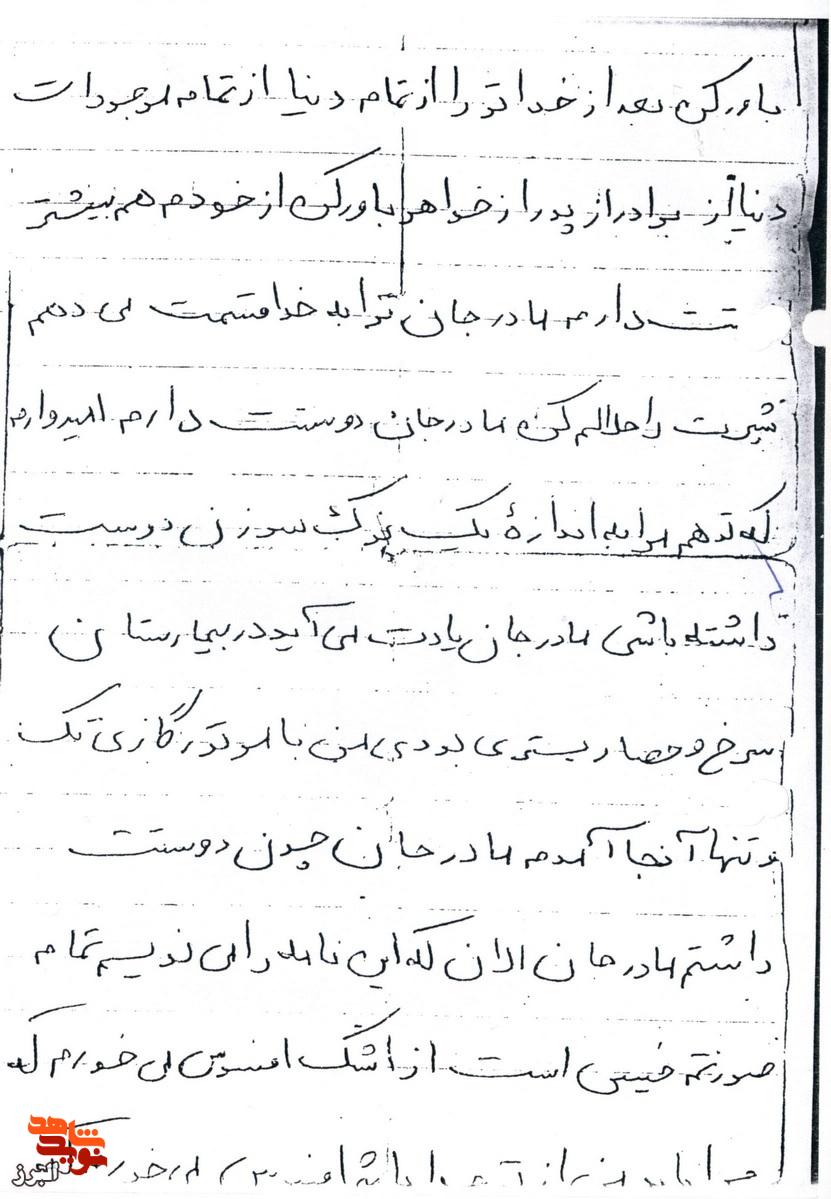 باور کن بعد از خدا تو را از تمام دنیا از تمام موجودات
دنیا از برادر از پدر از خواهر باور کن از خودم هم بیشتر
دارم مادر جان ترا به خدا قسمت می دهم
شیرت را حلالم کن مادر جان دوستت دارم امیدوارم
که تو هم مرا به اندازهٔ یک نوک سوزن دوست
داشته باشی مادر جان یادت می آید در بیمارستان
سرخ و حصار بستری بودی من با موتور گازی تک
و تنها آنجا آمدم مادر جان چون دوستت
داشتم مادر جان الان که این نامه را می نویسم تمام
صورتم خیس است از اشک افسوس می خورم که
نوید شاهد
البرز